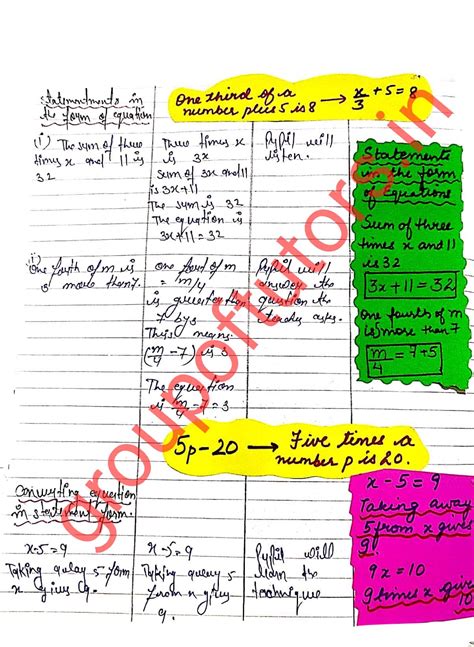 Statementments in
the form of equation
One third of a
number plus 5 is 8 → x/3 + 5 = 8
(i) The sum of three
times x and 11 is
32
Three times x
is 3x
Sum of 3x and 11
is 3x+11
The sum is 32
The equation is
3x+11=32
Pupil will
listen.
Statements
in the form
of Equations
Sum of three
times x and 11
is 32
3x + 11 = 32
One fourth of m
is more than 7
m/4 = 7+5
ii)
One forth of m is
3 more than 7.
one fourth of m
= m/4
is greater than
7 by 3
This means
(m/4 - 7) is 3
The equation
is m/4 - 7 = 3
Pupil will
answer the
question the
teacher asks.
5p-20 → Five times a
number p is 20.
Converting equation
in statement form.
x-5=9
Taking away 5 from
x gives 9.
x-5=9
Taking away 5
from x gives
9.
Pupil will
learn the
technique
x - 5 = 9
Taking away
5 from x gives
9!
9x = 10
9 times x gives
10
groupoftutors.in